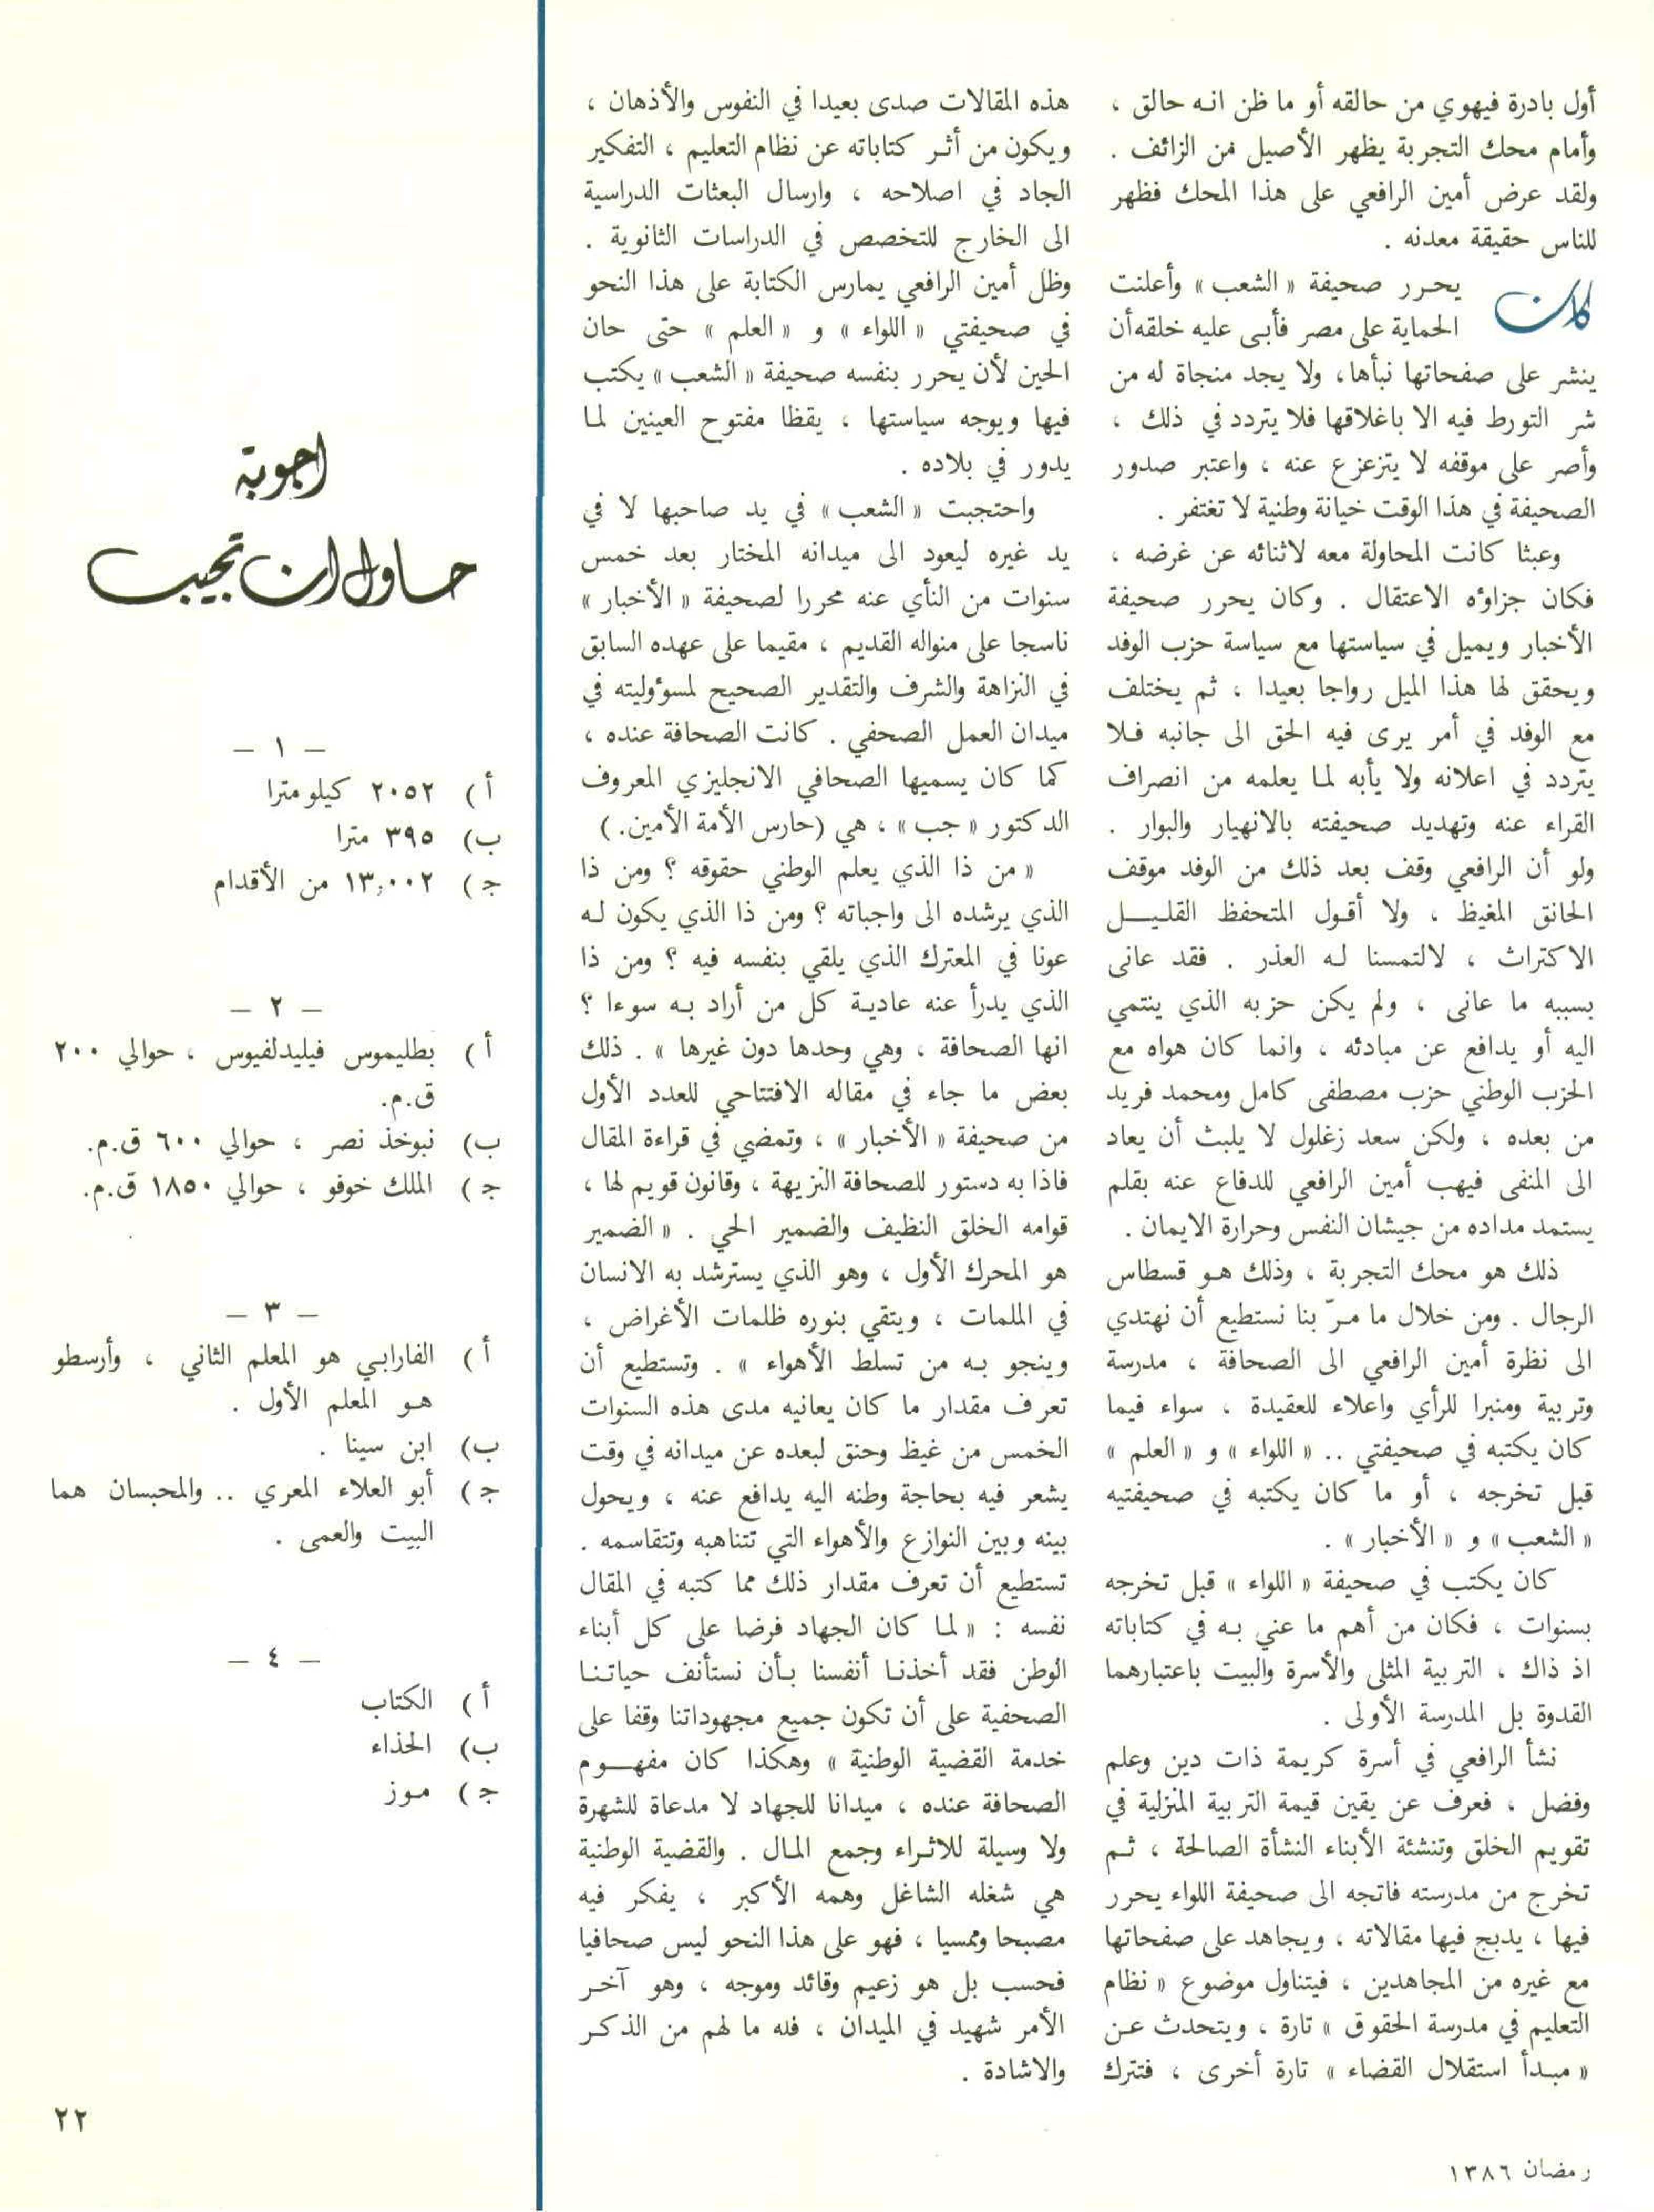 أول بادرة فيهوي من حالقه أو ما ظن انه حالق ،
وأمام محك التجربة يظهر الأصيل من الزائف .
ولقد عرض أمين الرافعي على هذا المحك فظهر
للناس حقيقة معدنه .
كان يحرر صحيفة « الشعب » وأعلنت
الحماية على مصر فأبى عليه خلقه أن
ينشر على صفحاتها نبأها، ولا يجد منجاة له من
شر التورط فيه الا باغلاقها فلا يتردد في ذلك ،
وأصر على موقفه لا يتزعزع عنه ، واعتبر صدور
الصحيفة في هذا الوقت خيانة وطنية لا تغتفر .
وعبثا كانت المحاولة معه لاثنائه عن غرضه ،
فكان جزاؤه الاعتقال . وكان يحرر صحيفة
الأخبار ويميل في سياستها مع سياسة حزب الوفد
ويحقق لها هذا الميل رواجا بعيدا ، ثم يختلف
مع الوفد في أمر يرى فيه الحق الى جانبه فلا
يتردد في اعلانه ولا يأبه لما يعلمه من انصراف
القراء عنه وتهديد صحيفته بالانهيار والبوار .
ولو أن الرافعي وقف بعد ذلك من الوفد موقف
الحانق المغيظ ، ولا أقول المتحفظ القليل
الاكتراث ، لالتمسنا له العذر . فقد عانى
بسببه ما عانى ، ولم يكن حزبه الذي ينتمي
اليه أو يدافع عن مبادئه ، وانما كان هواه مع
الحزب الوطني حزب مصطفى كامل ومحمد فريد
من بعده ، ولكن سعد زغلول لا يلبث أن يعاد
الى المنفى فيهب أمين الرافعي للدفاع عنه بقلم
يستمد مداده من جيشان النفس وحرارة الايمان .
ذلك هو محك التجربة ، وذلك هو قسطاس
الرجال . ومن خلال ما مرّ بنا نستطيع أن نهتدي
الى نظرة أمين الرافعي الى الصحافة ، مدرسة
وتربية ومنبرا للرأي واعلاء للعقيدة ، سواء فيما
كان يكتبه في صحيفتي .. « اللواء » و « العلم »
قبل تخرجه ، أو ما كان يكتبه في صحيفتيه
« الشعب » و « الأخبار » .
كان يكتب في صحيفة « اللواء » قبل تخرجه
بسنوات ، فكان من أهم ما عني به في كتاباته
اذ ذاك ، التربية المثلى والأسرة والبيت باعتبارهما
القدوة بل المدرسة الأولى .
نشأ الرافعي في أسرة كريمة ذات دين وعلم
وفضل ، فعرف عن يقين قيمة التربية المنزلية في
تقويم الخلق وتنشئة الأبناء النشأة الصالحة ، ثم
تخرج من مدرسته فاتجه الى صحيفة اللواء يحرر
فيها ، يدبج فيها مقالاته ، ويجاهد على صفحاتها
مع غيره من المجاهدين ، فيتناول موضوع « نظام
التعليم في مدرسة الحقوق » تارة ، ويتحدث عن
« مبدأ استقلال القضاء » تارة أخرى ، فتترك
هذه المقالات صدى بعيدا في النفوس والأذهان ،
ويكون من أثر كتاباته عن نظام التعليم ، التفكير
الجاد في اصلاحه ، وارسال البعثات الدراسية
الى الخارج للتخصص في الدراسات الثانوية .
وظل أمين الرافعي يمارس الكتابة على هذا النحو
في صحيفتي « اللواء » و « العلم » حتى حان
الحين لأن يحرر بنفسه صحيفة « الشعب » يكتب
فيها ويوجه سياستها ، يقظا مفتوح العينين لما
يدور في بلاده .
واحتجبت « الشعب » في يد صاحبها لا في
يد غيره ليعود الى ميدانه المختار بعد خمس
سنوات من النأي عنه محررا لصحيفة « الأخبار »
ناسجا على منواله القديم ، مقيما على عهده السابق
في النزاهة والشرف والتقدير الصحيح لمسؤوليته في
ميدان العمل الصحفي . كانت الصحافة عنده ،
كما كان يسميها الصحافي الانجليزي المعروف
الدكتور « جب » ، هي (حارس الأمة الأمين.)
« من ذا الذي يعلم الوطني حقوقه ؟ ومن ذا
الذي يرشده الى واجباته ؟ ومن ذا الذي يكون له
عونا في المعترك الذي يلقي بنفسه فيه ؟ ومن ذا
الذي يدرأ عنه عادية كل من أراد به سوءا ؟
انها الصحافة ، وهي وحدها دون غيرها » . ذلك
بعض ما جاء في مقاله الافتتاحي للعدد الأول
من صحيفة « الأخبار » ، وتمضي في قراءة المقال
فاذا به دستور للصحافة النزيهة ، وقانون قويم لها ،
قوامه الخلق النظيف والضمير الحي . « الضمير
هو المحرك الأول ، وهو الذي يسترشد به الانسان
في الملمات ، ويتقي بنوره ظلمات الأغراض ،
وينجو به من تسلط الأهواء » . وتستطيع أن
تعرف مقدار ما كان يعانيه مدى هذه السنوات
الخمس من غيظ وحنق لبعده عن ميدانه في وقت
يشعر فيه بحاجة وطنه اليه يدافع عنه ، ويحول
بينه وبين النوازع والأهواء التي تتناهبه وتتقاسمه .
تستطيع أن تعرف مقدار ذلك مما كتبه في المقال
نفسه : « لما كان الجهاد فرضا على كل أبناء
الوطن فقد أخذنا أنفسنا بأن نستأنف حياتنا
الصحفية على أن تكون جميع مجهوداتنا وقفا على
خدمة القضية الوطنية » وهكذا كان مفهوم
الصحافة عنده ، ميدانا للجهاد لا مدعاة للشهرة
ولا وسيلة للاثراء وجمع المال . والقضية الوطنية
هي شغله الشاغل وهمه الأكبر ، يفكر فيه
مصبحا وممسيا ، فهو على هذا النحو ليس صحافيا
فحسب بل هو زعيم وقائد وموجه ، وهو آخر
الأمر شهيد في الميدان ، فله ما لهم من الذكر
والاشادة .
اجوبة
حاول ان تجيب
– ١ –
أ ) ٢٠٥٢ كيلو مترا
ب) ٣٩٥ مترا
ج ) ١٣,٠٠٢ من الأقدام
– ٢ –
أ ) بطليموس فيليدلفيوس ، حوالي ٢٠٠
ق.م.
ب) نبوخذ نصر ، حوالي ٦٠٠ ق.م.
ج ) الملك خوفو ، حوالي ١٨٥٠ ق.م.
– ٣ –
أ ) الفارابي هو المعلم الثاني ، وأرسطو
هو المعلم الأول .
ب) ابن سينا .
ج ) أبو العلاء المعري .. والمحبسان هما
البيت والعمى .
– ٤ –
أ ) الكتاب
ب) الحذاء
ج ) موز
٢٢
رمضان ١٣٨٦